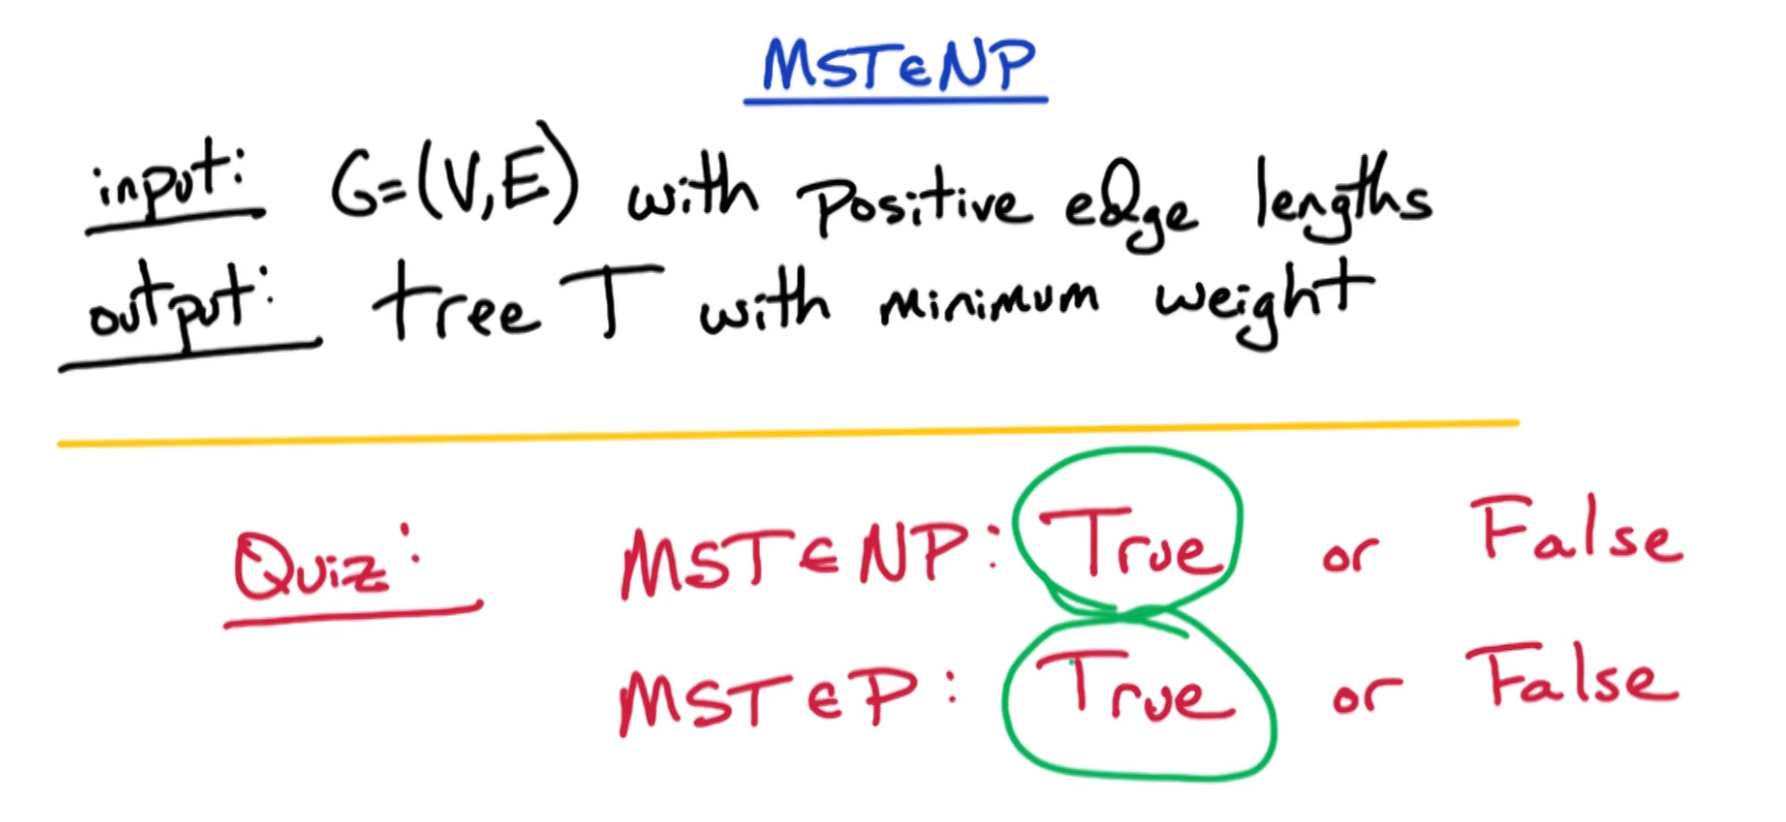 MST∈NP
input: G=(V,E) with positive edge lengths
output: tree T with minimum weight
Quiz: MST∈NP: True or False
MST∈P: True or False